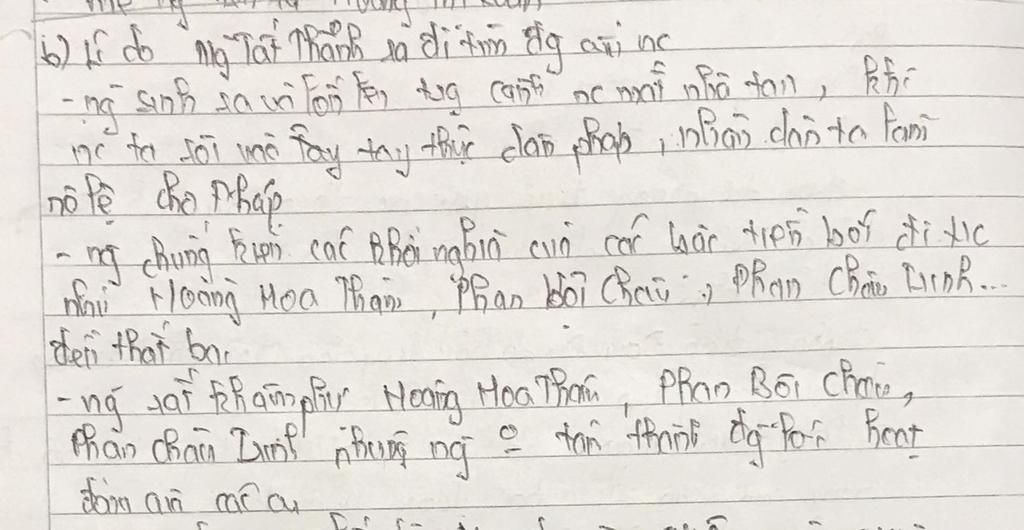 b) Lí do Ng Tất Thành ra đi tìm đg cứu nc
- ng sinh ra và lớn lên tog cảnh nc mất nhà tan, khi
nc ta rơi vào tay thực dân pháp, nhân dân ta làm
nô lệ cho Pháp
- ng chứng kiến các khởi nghĩa của các bậc tiền bối đi trc
như Hoàng Hoa Thám, Phan Bội Châu, Phan Châu Trinh...
đều thất bại
- ng rất khâm phục Hoàng Hoa Thám, Phan Bội Châu,
Phan Châu Trinh nhưng ng tán thành đg lối hoạt
động của các cụ